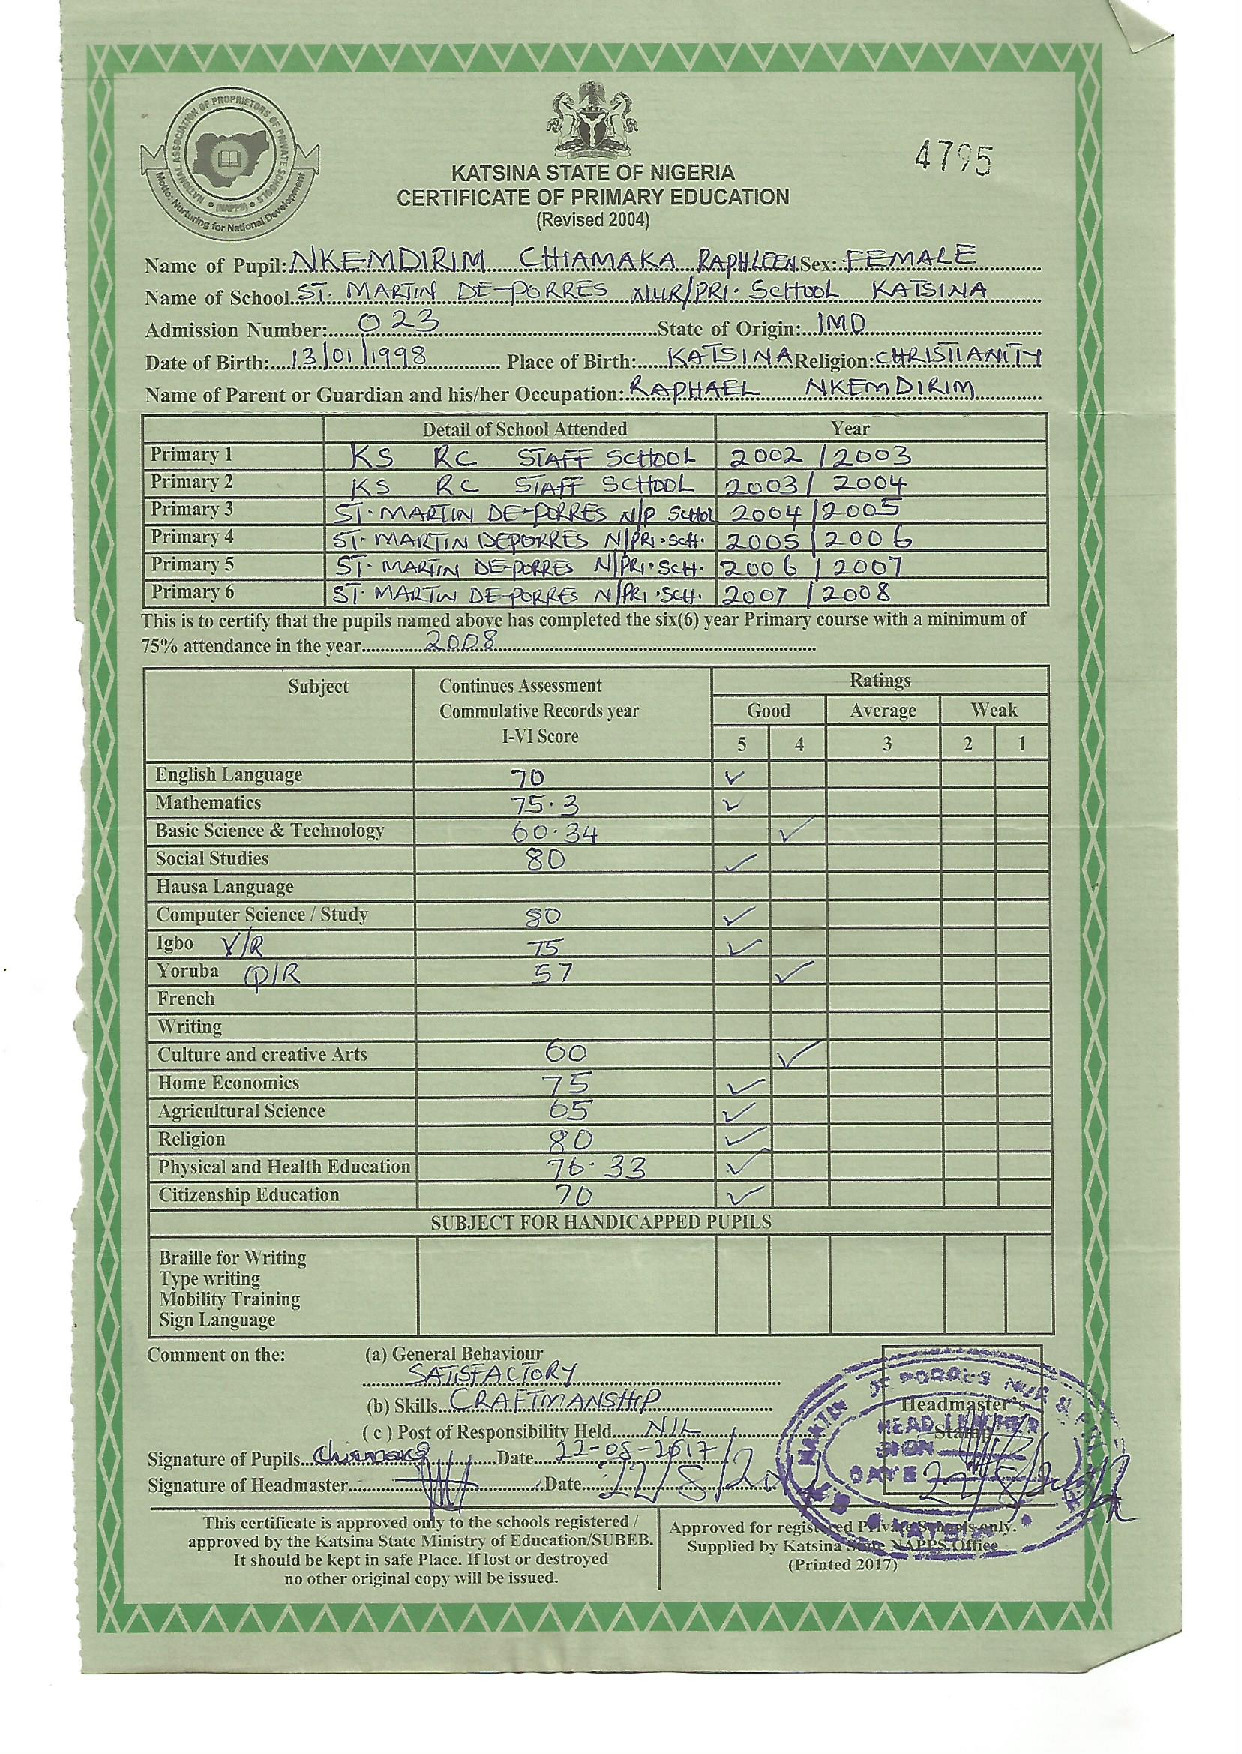 NATIONAL ASSOCIATION OF PROPRIETORS OF PRIVATE SCHOOLS
(NAPPS)
Motto: Nurturing for National Development
4795
KATSINA STATE OF NIGERIA
CERTIFICATE OF PRIMARY EDUCATION
(Revised 2004)
Name of Pupil: NKEMDIRIM CHIAMAKA Sex: FEMALE
Name of School ST. MARTIN DE-PORRES NUR/PRI. SCHOOL KATSINA
Admission Number: 023 State of Origin: IMO
Date of Birth: 13/01/1998 Place of Birth: KATSINA Religion: CHRISTIANITY
Name of Parent or Guardian and his/her Occupation: RAPHAEL NKEMDIRIM
Detail of School Attended Year
Primary 1 KS RC STAFF SCHOOL 2002/2003
Primary 2 KS RC STAFF SCHOOL 2003/2004
Primary 3 ST. MARTIN DE-PORRES N/P School 2004/2005
Primary 4 ST. MARTIN DEPORRES N/PRI. SCH. 2005/2006
Primary 5 ST. MARTIN DE-PORRES N/PRI. SCH. 2006/2007
Primary 6 ST. MARTIN DE-PORRES N/PRI. SCH. 2007/2008
This is to certify that the pupils named above has completed the six(6) year Primary course with a minimum of
75% attendance in the year 2008
Subject Continues Assessment Commulative Records year I-VI Score Ratings
Good Average Weak
5 4 3 2 1
English Language 70 ✓
Mathematics 75.3 ✓
Basic Science & Technology 60.34 ✓
Social Studies 80 ✓
Hausa Language
Computer Science / Study 80 ✓
Igbo V/R 75 ✓
Yoruba Q/R 57 ✓
French
Writing
Culture and creative Arts 60 ✓
Home Economics 75 ✓
Agricultural Science 65 ✓
Religion 80 ✓
Physical and Health Education 76.33 ✓
Citizenship Education 70 ✓
SUBJECT FOR HANDICAPPED PUPILS
Braille for Writing
Type writing
Mobility Training
Sign Language
Comment on the: (a) General Behaviour
SATISFACTORY
(b) Skills CRAFTMANSHIP
(c) Post of Responsibility Held NIL
Signature of Pupils Chiamaka Date 22-08-2017
Signature of Headmaster Date 22/8/2017
Headmaster's
Stamp
HEAD TEACHER
SIGN
DATE
This certificate is approved only to the schools registered /
approved by the Katsina State Ministry of Education/SUBEB.
It should be kept in safe Place. If lost or destroyed
no other original copy will be issued.
Approved for registered Private Schools only.
Supplied by Katsina State NAPPS Office
(Printed 2017)